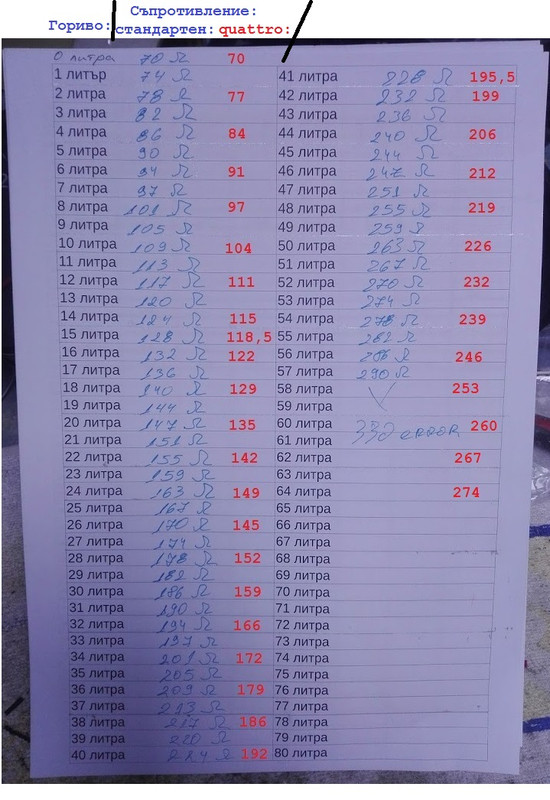 Съпротивление:
Гориво: стандартен: quattro:
0 литра 70 Ω 70
1 литър 74 Ω
2 литра 78 Ω 77
3 литра 82 Ω
4 литра 86 Ω 84
5 литра 90 Ω
6 литра 94 Ω 91
7 литра 97 Ω
8 литра 101 Ω 97
9 литра 105 Ω
10 литра 109 Ω 104
11 литра 113 Ω
12 литра 117 Ω 111
13 литра 120 Ω
14 литра 124 Ω 115
15 литра 128 Ω 118,5
16 литра 132 Ω 122
17 литра 136 Ω
18 литра 140 Ω 129
19 литра 144 Ω
20 литра 147 Ω 135
21 литра 151 Ω
22 литра 155 Ω 142
23 литра 159 Ω
24 литра 163 Ω 149
25 литра 167 Ω
26 литра 170 Ω 145
27 литра 174 Ω
28 литра 178 Ω 152
29 литра 182 Ω
30 литра 186 Ω 159
31 литра 190 Ω
32 литра 194 Ω 166
33 литра 197 Ω
34 литра 201 Ω 172
35 литра 205 Ω
36 литра 209 Ω 179
37 литра 213 Ω
38 литра 217 Ω 186
39 литра 220 Ω
40 литра 224 Ω 192
41 литра 228 Ω 195,5
42 литра 232 Ω 199
43 литра 236 Ω
44 литра 240 Ω 206
45 литра 244 Ω
46 литра 247 Ω 212
47 литра 251 Ω
48 литра 255 Ω 219
49 литра 259 Ω
50 литра 263 Ω 226
51 литра 267 Ω
52 литра 270 Ω 232
53 литра 274 Ω
54 литра 278 Ω 239
55 литра 282 Ω
56 литра 286 Ω 246
57 литра 290 Ω
58 литра 253
59 литра
60 литра 332 error 260
61 литра
62 литра 267
63 литра
64 литра 274
65 литра
66 литра
67 литра
68 литра
69 литра
70 литра
71 литра
72 литра
73 литра
74 литра
75 литра
76 литра
77 литра
78 литра
79 литра
80 литра